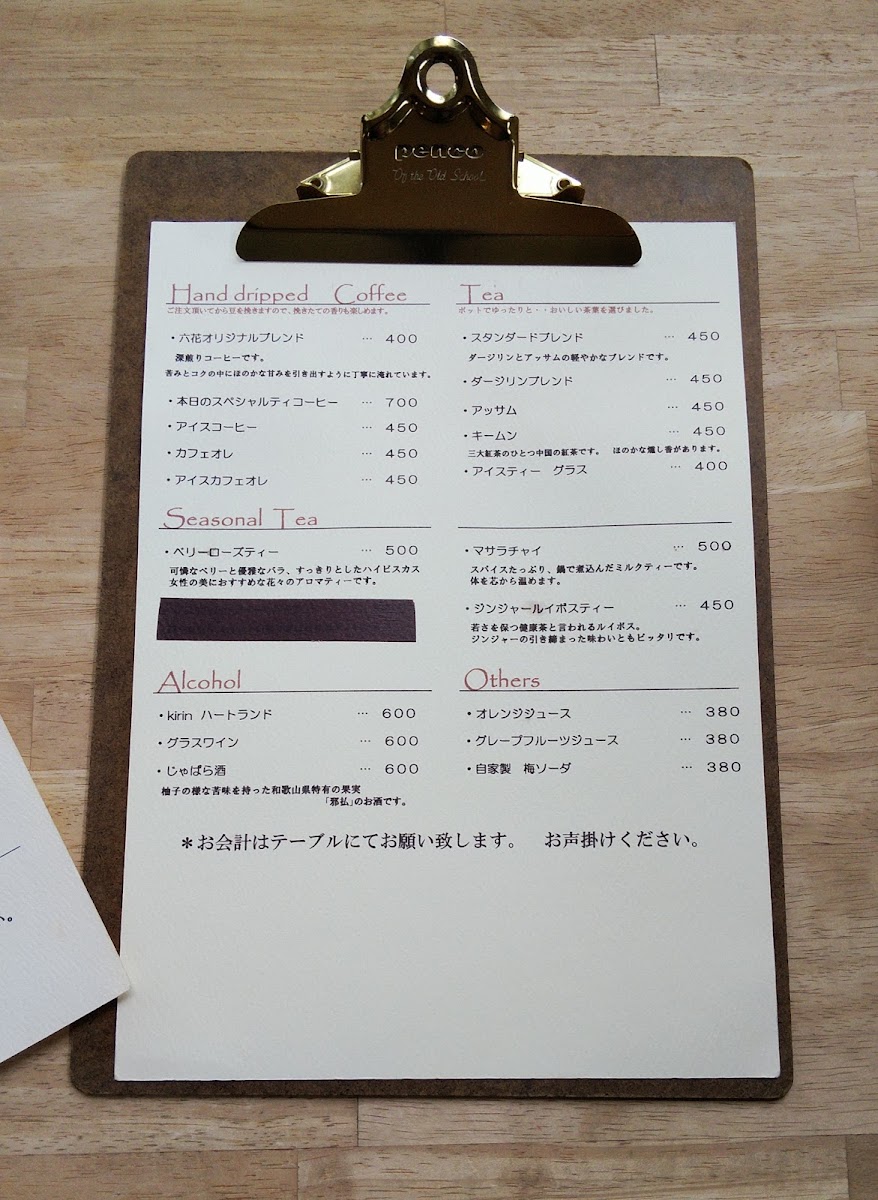 penco
Of the Old School
Hand dripped Coffee
ご注文頂いてから豆を挽きますので、挽きたての香りも楽しめます。
・六花オリジナルブレンド … 400
深煎りコーヒーです。
苦みとコクの中にほのかな甘みを引き出すように丁寧に淹れています。
・本日のスペシャルティコーヒー … 700
・アイスコーヒー … 450
・カフェオレ … 450
・アイスカフェオレ … 450
Tea
ポットでゆったりと・・おいしい茶葉を選びました。
・スタンダードブレンド … 450
ダージリンとアッサムの軽やかなブレンドです。
・ダージリンブレンド … 450
・アッサム … 450
・キームン … 450
三大紅茶のひとつ中国の紅茶です。 ほのかな燻し香があります。
・アイスティー グラス … 400
Seasonal Tea
・ベリーローズティー … 500
可憐なベリーと優雅なバラ、すっきりとしたハイビスカス
女性の美におすすめな花々のアロマティーです。
・マサラチャイ … 500
スパイスたっぷり、鍋で煮込んだミルクティーです。
体を芯から温めます。
・ジンジャールイボスティー … 450
若さを保つ健康茶と言われるルイボス。
ジンジャーの引き締まった味わいともピッタリです。
Alcohol
・kirin ハートランド … 600
・グラスワイン … 600
・じゃばら酒 … 600
柚子の様な苦味を持った和歌山県特有の果実
「邪払」のお酒です。
Others
・オレンジジュース … 380
・グレープフルーツジュース … 380
・自家製 梅ソーダ … 380
＊お会計はテーブルにてお願い致します。 お声掛けください。